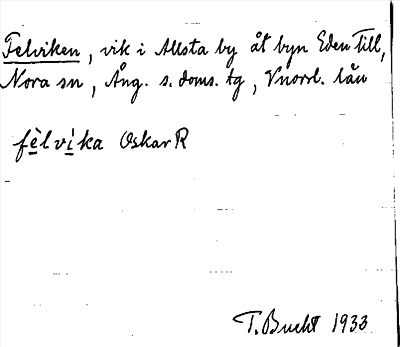 Felviken, vik i Allsta by åt byn Eden till,
Nora sn, Ång. s. doms. tg, Vnorrl. län
fèlvìka Oskar R
T. Bucht 1933